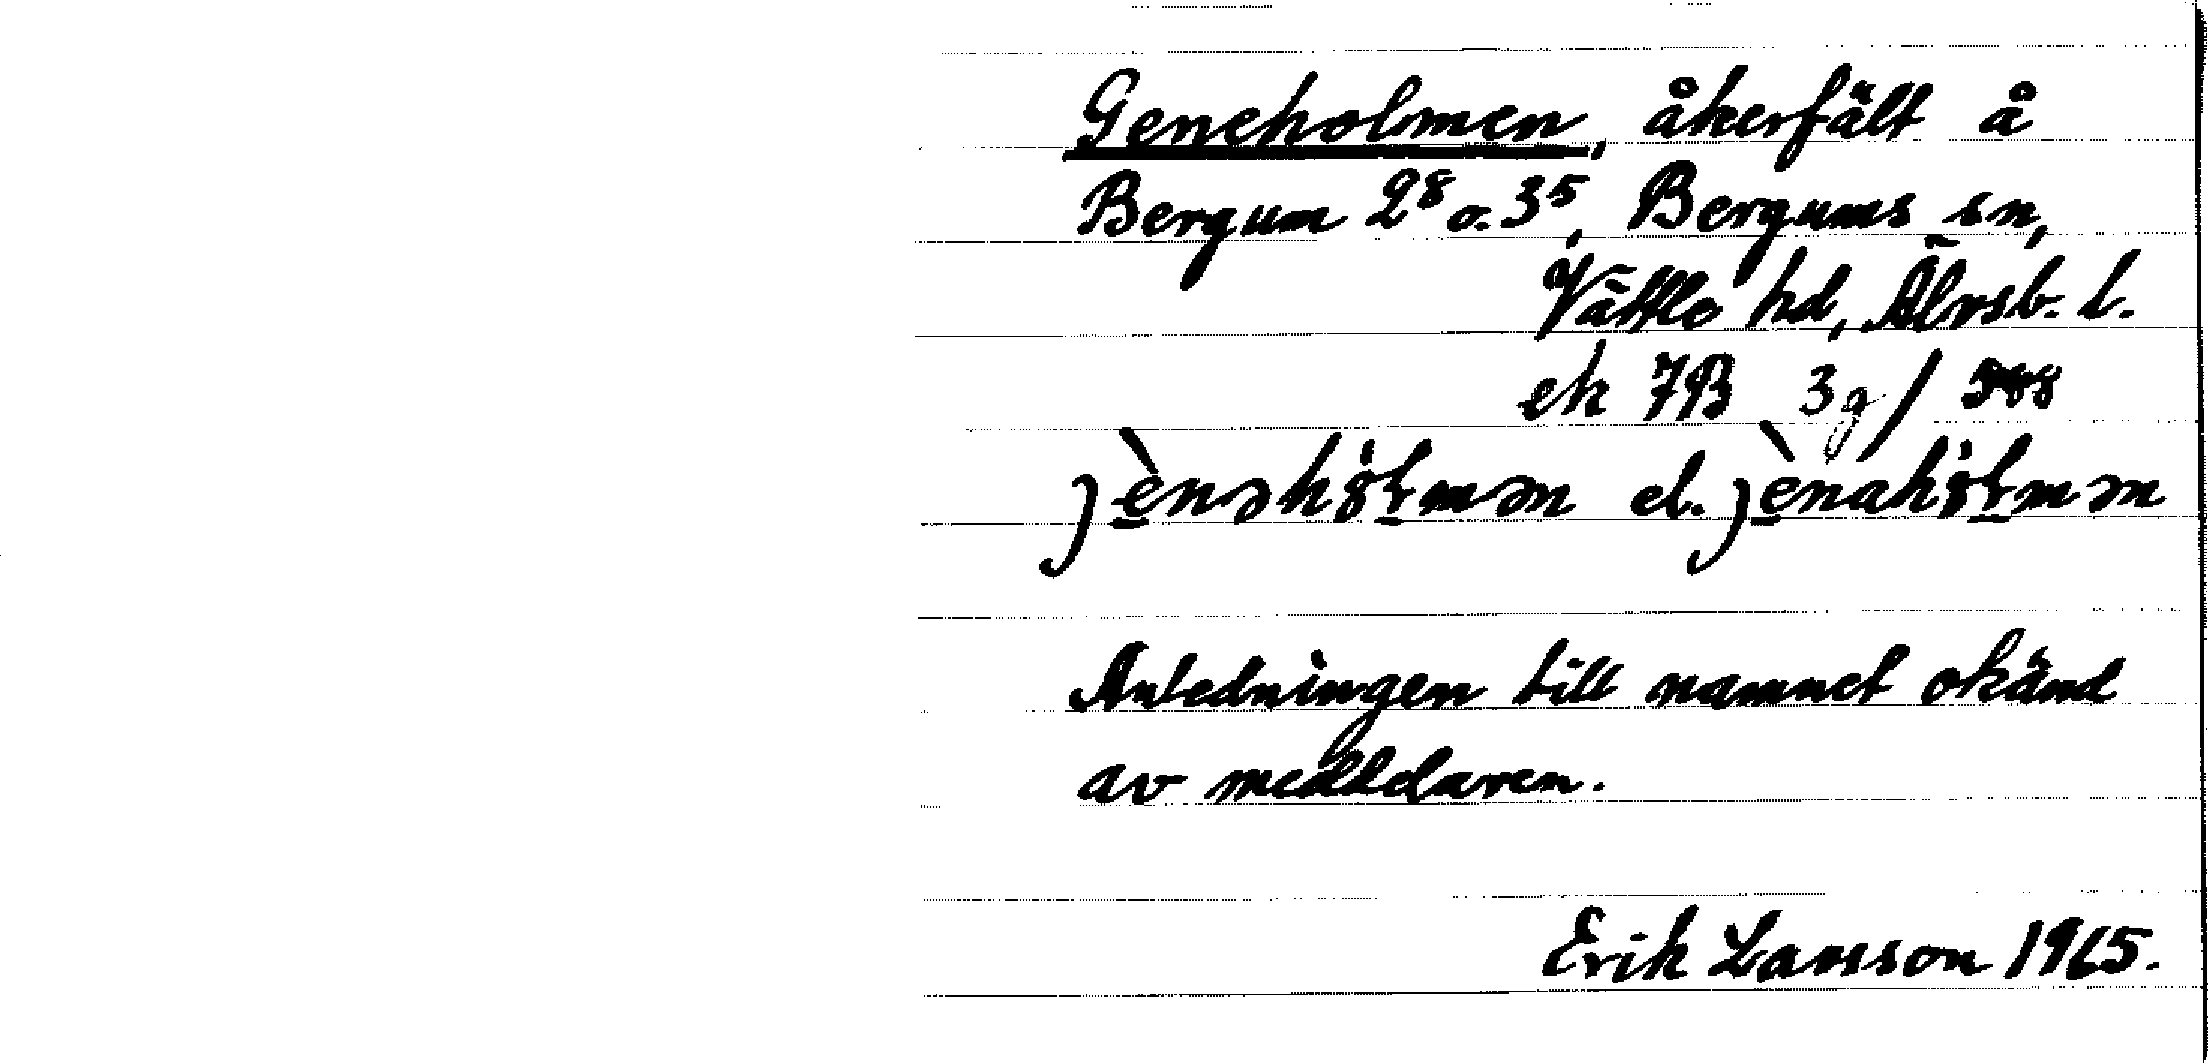 Geneholmen, åkerfält å
Bergum 2⁸ o. 3⁵, Bergums sn,
Vättle hd, Älvsb. l.
ek 7B 3g/588
j̀enəhólmən el. j̀enahólmən
Anledningen till namnet okänd
av meddelaren.
Erik Larsson 1965.